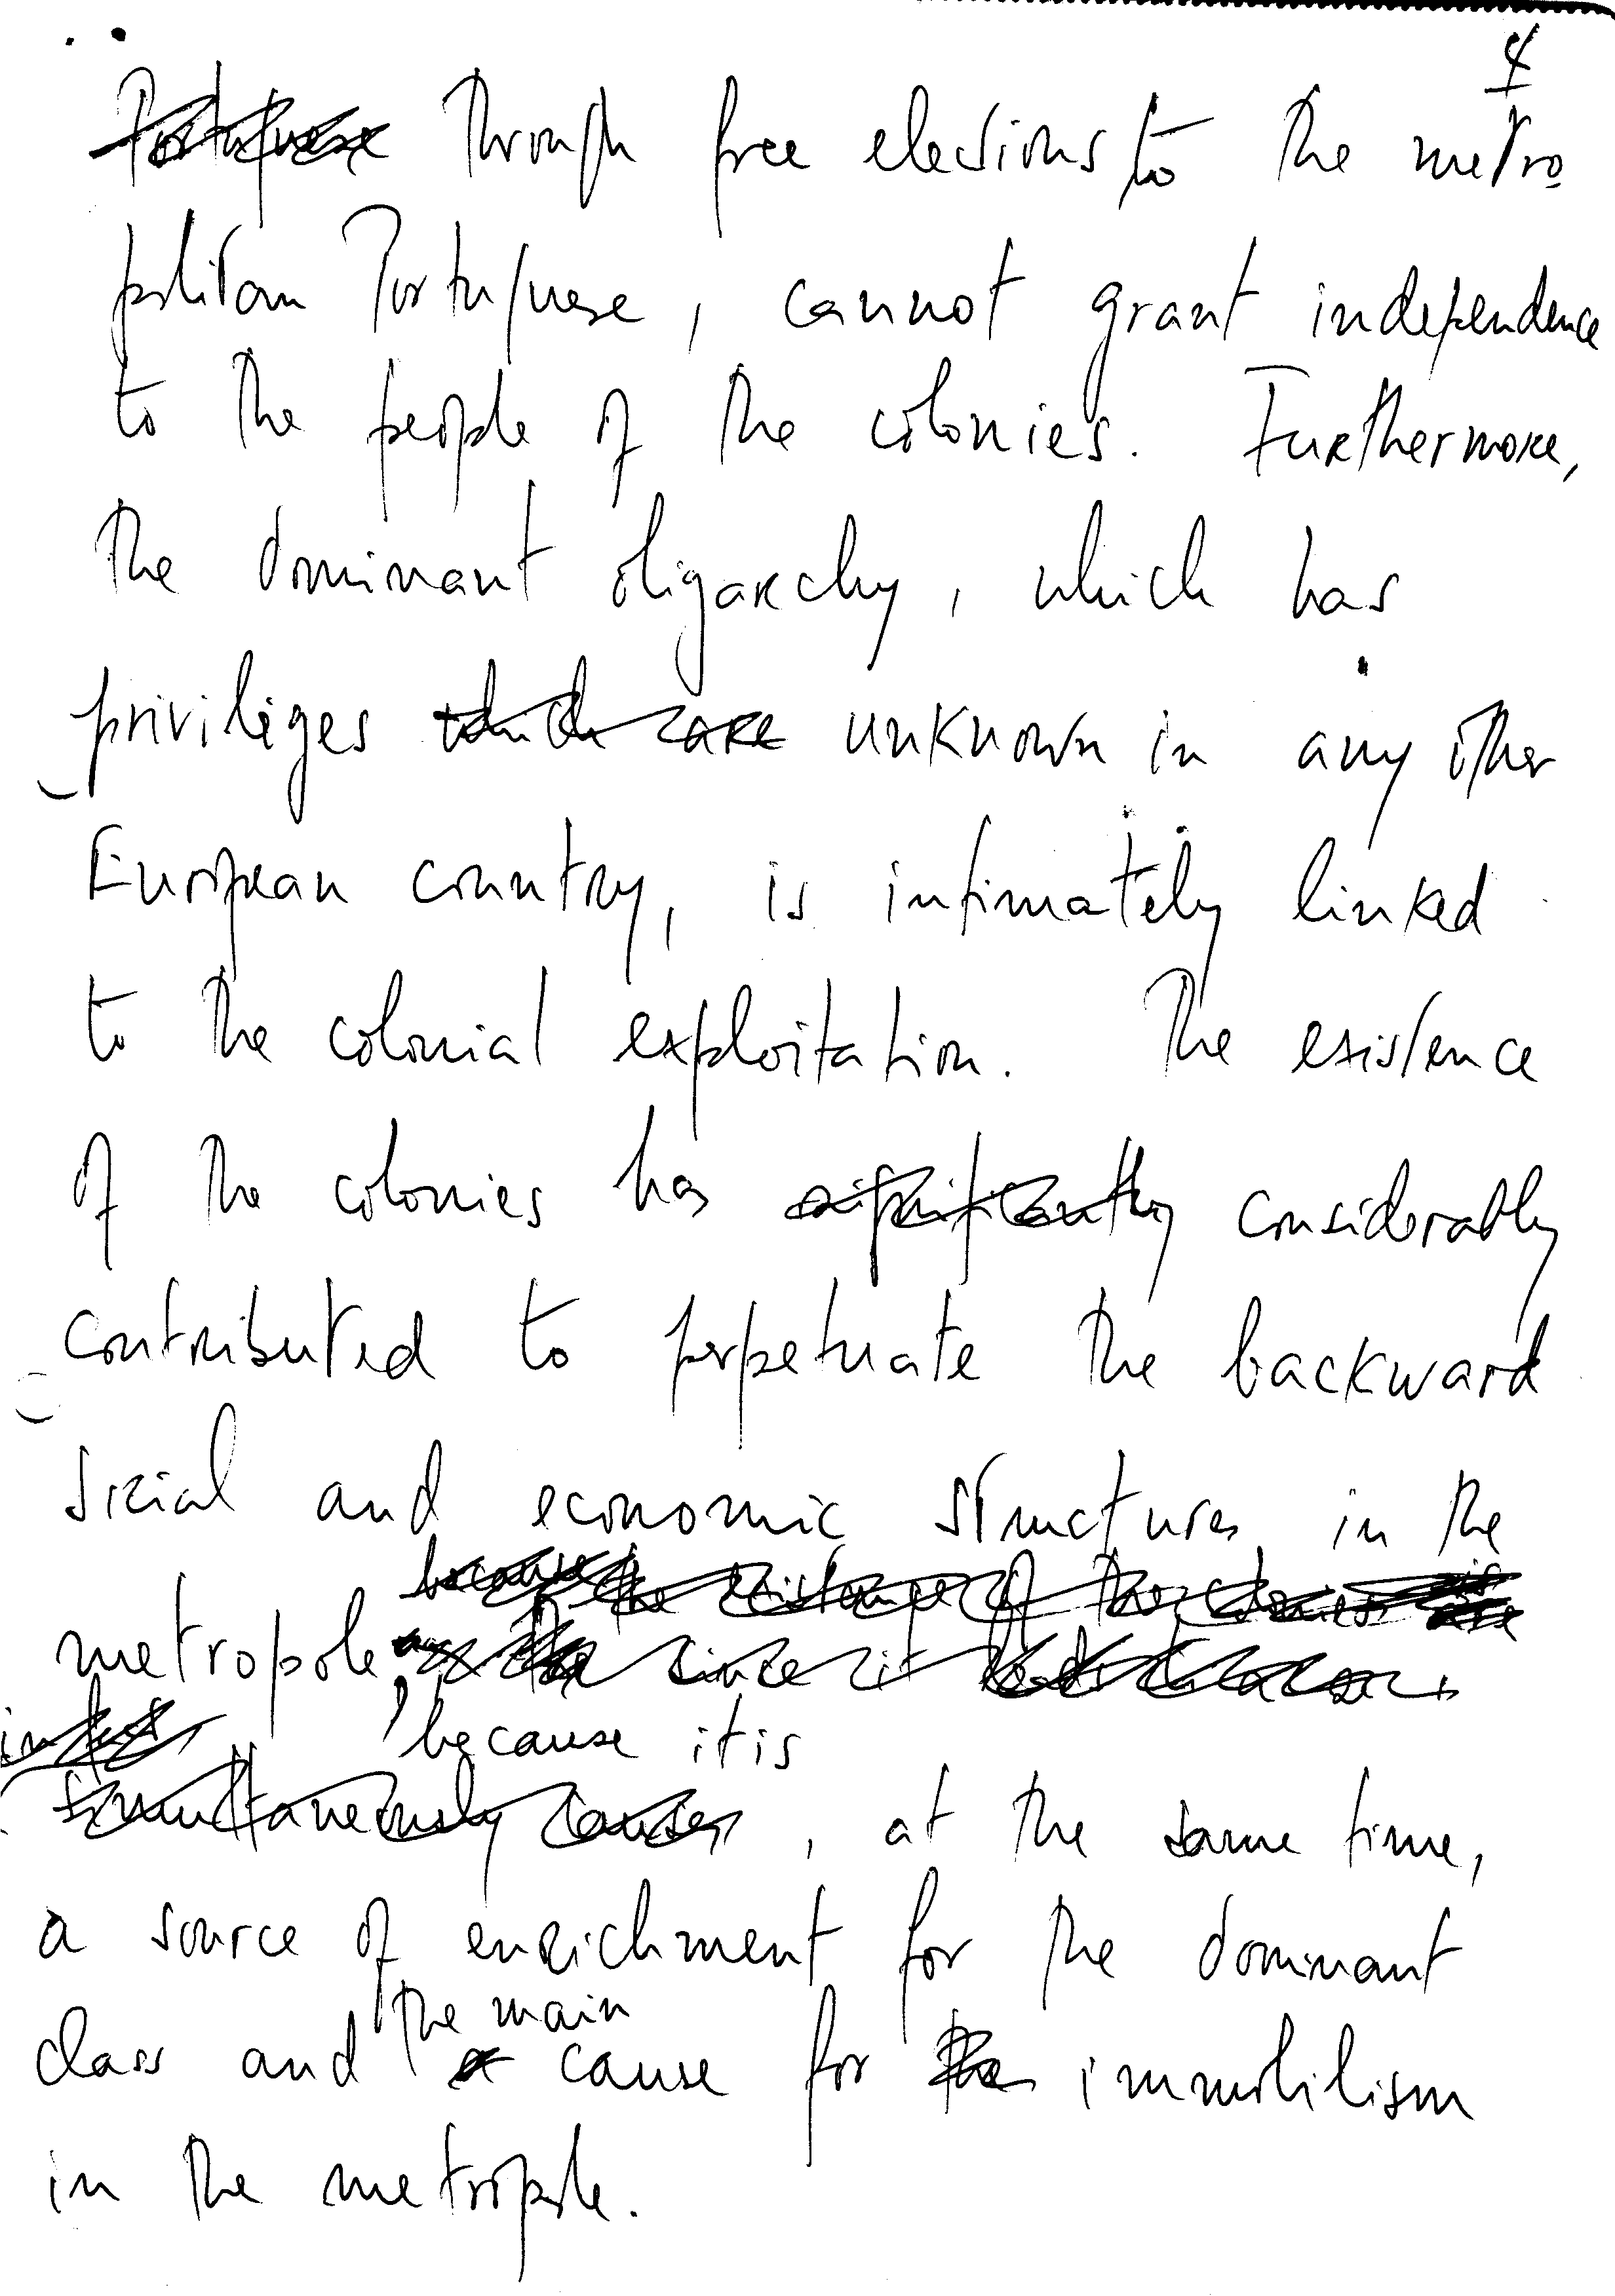 4
Portuguese through free elections to the metro
politan Portuguese, cannot grant independence
to the people of the colonies. Furthermore,
the dominant oligarchy, which has
priviliges which are unknown in any other
European country, is intimately linked
to the colonial exploitation. The existence
of the colonies has significantly considerably
contributed to perpetuate the backward
social and economic structures in the
because the existence of the colonies is
metropole, since it
because it is
simultaneously causes, at the same time,
a source of enrichment for the dominant
the main
class and a cause for the immobilism
in the metropole.